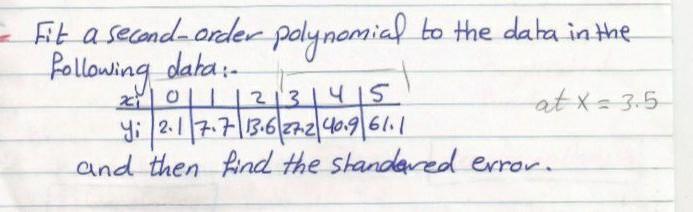 Fit a second-order polynomial to the data in the
following data:-
xi | 0 | 1 | 2 | 3 | 4 | 5
at x = 3.5
yi | 2.1 | 7.7 | 13.6 | 27.2 | 40.9 | 61.1
and then find the standered error.